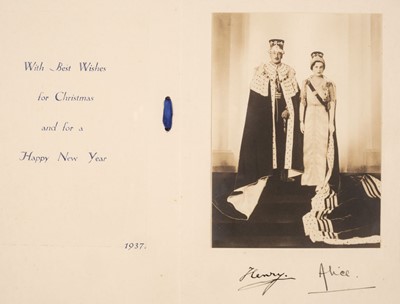 With Best Wishes
for Christmas
and for a
Happy New Year
1937.
Henry.
Alice.